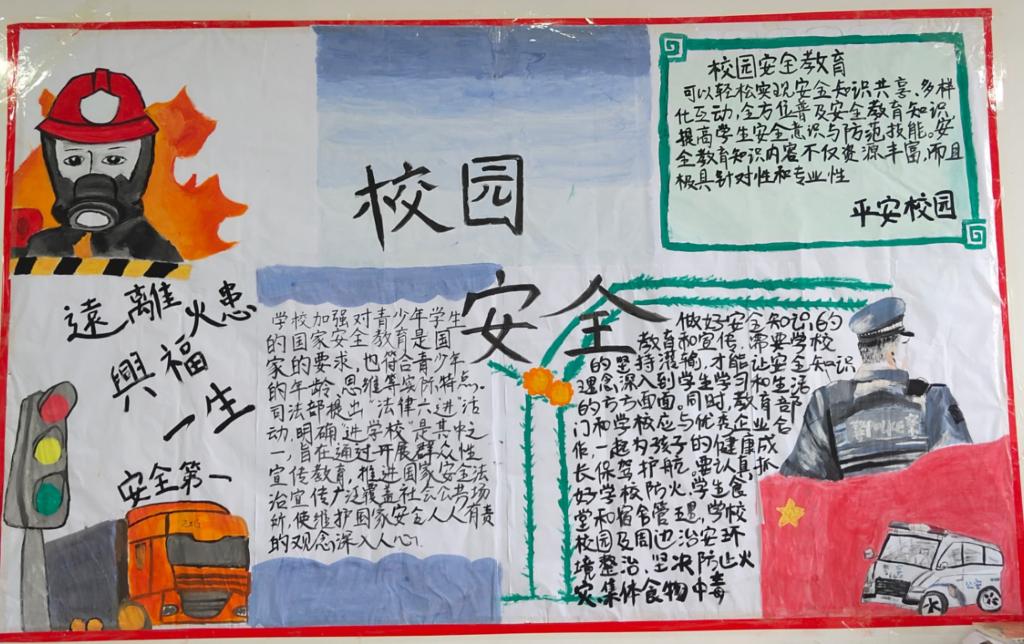 校园
安全
校园安全教育
可以轻松实现安全知识共享、多样
化互动,全方位普及安全教育知识,
提高学生安全意识与防范技能。安
全教育知识内容不仅资源丰富,而且
极具针对性和专业性
平安校园
遠離火患
興福
一生
安全第一
学校加强对青少年学生
的国家安全教育是国
家的要求,也符合青少年
的年龄、思维等实际特点。
司法部提出“法律六进”活
动,明确“进学校”是其中之
一,旨在通过开展群众性
宣传教育,推进国家安全法
治宣传广泛覆盖社会公共场
所,使维护国家安全人人有责
的观念深入人心.
做好安全知识的
教育和宣传,需要学校
的坚持灌输,才能让安全知识
理念深入到学生学习和生活
的方方面面。同时,教育部
门和学校应与优秀企业合
作,一起为孩子的健康成
长保驾护航,要认真抓
好学校防火、学生食
堂和宿舍管理,学校
校园及周边治安环
境整治,坚决防止火
灾、集体食物中毒
公安